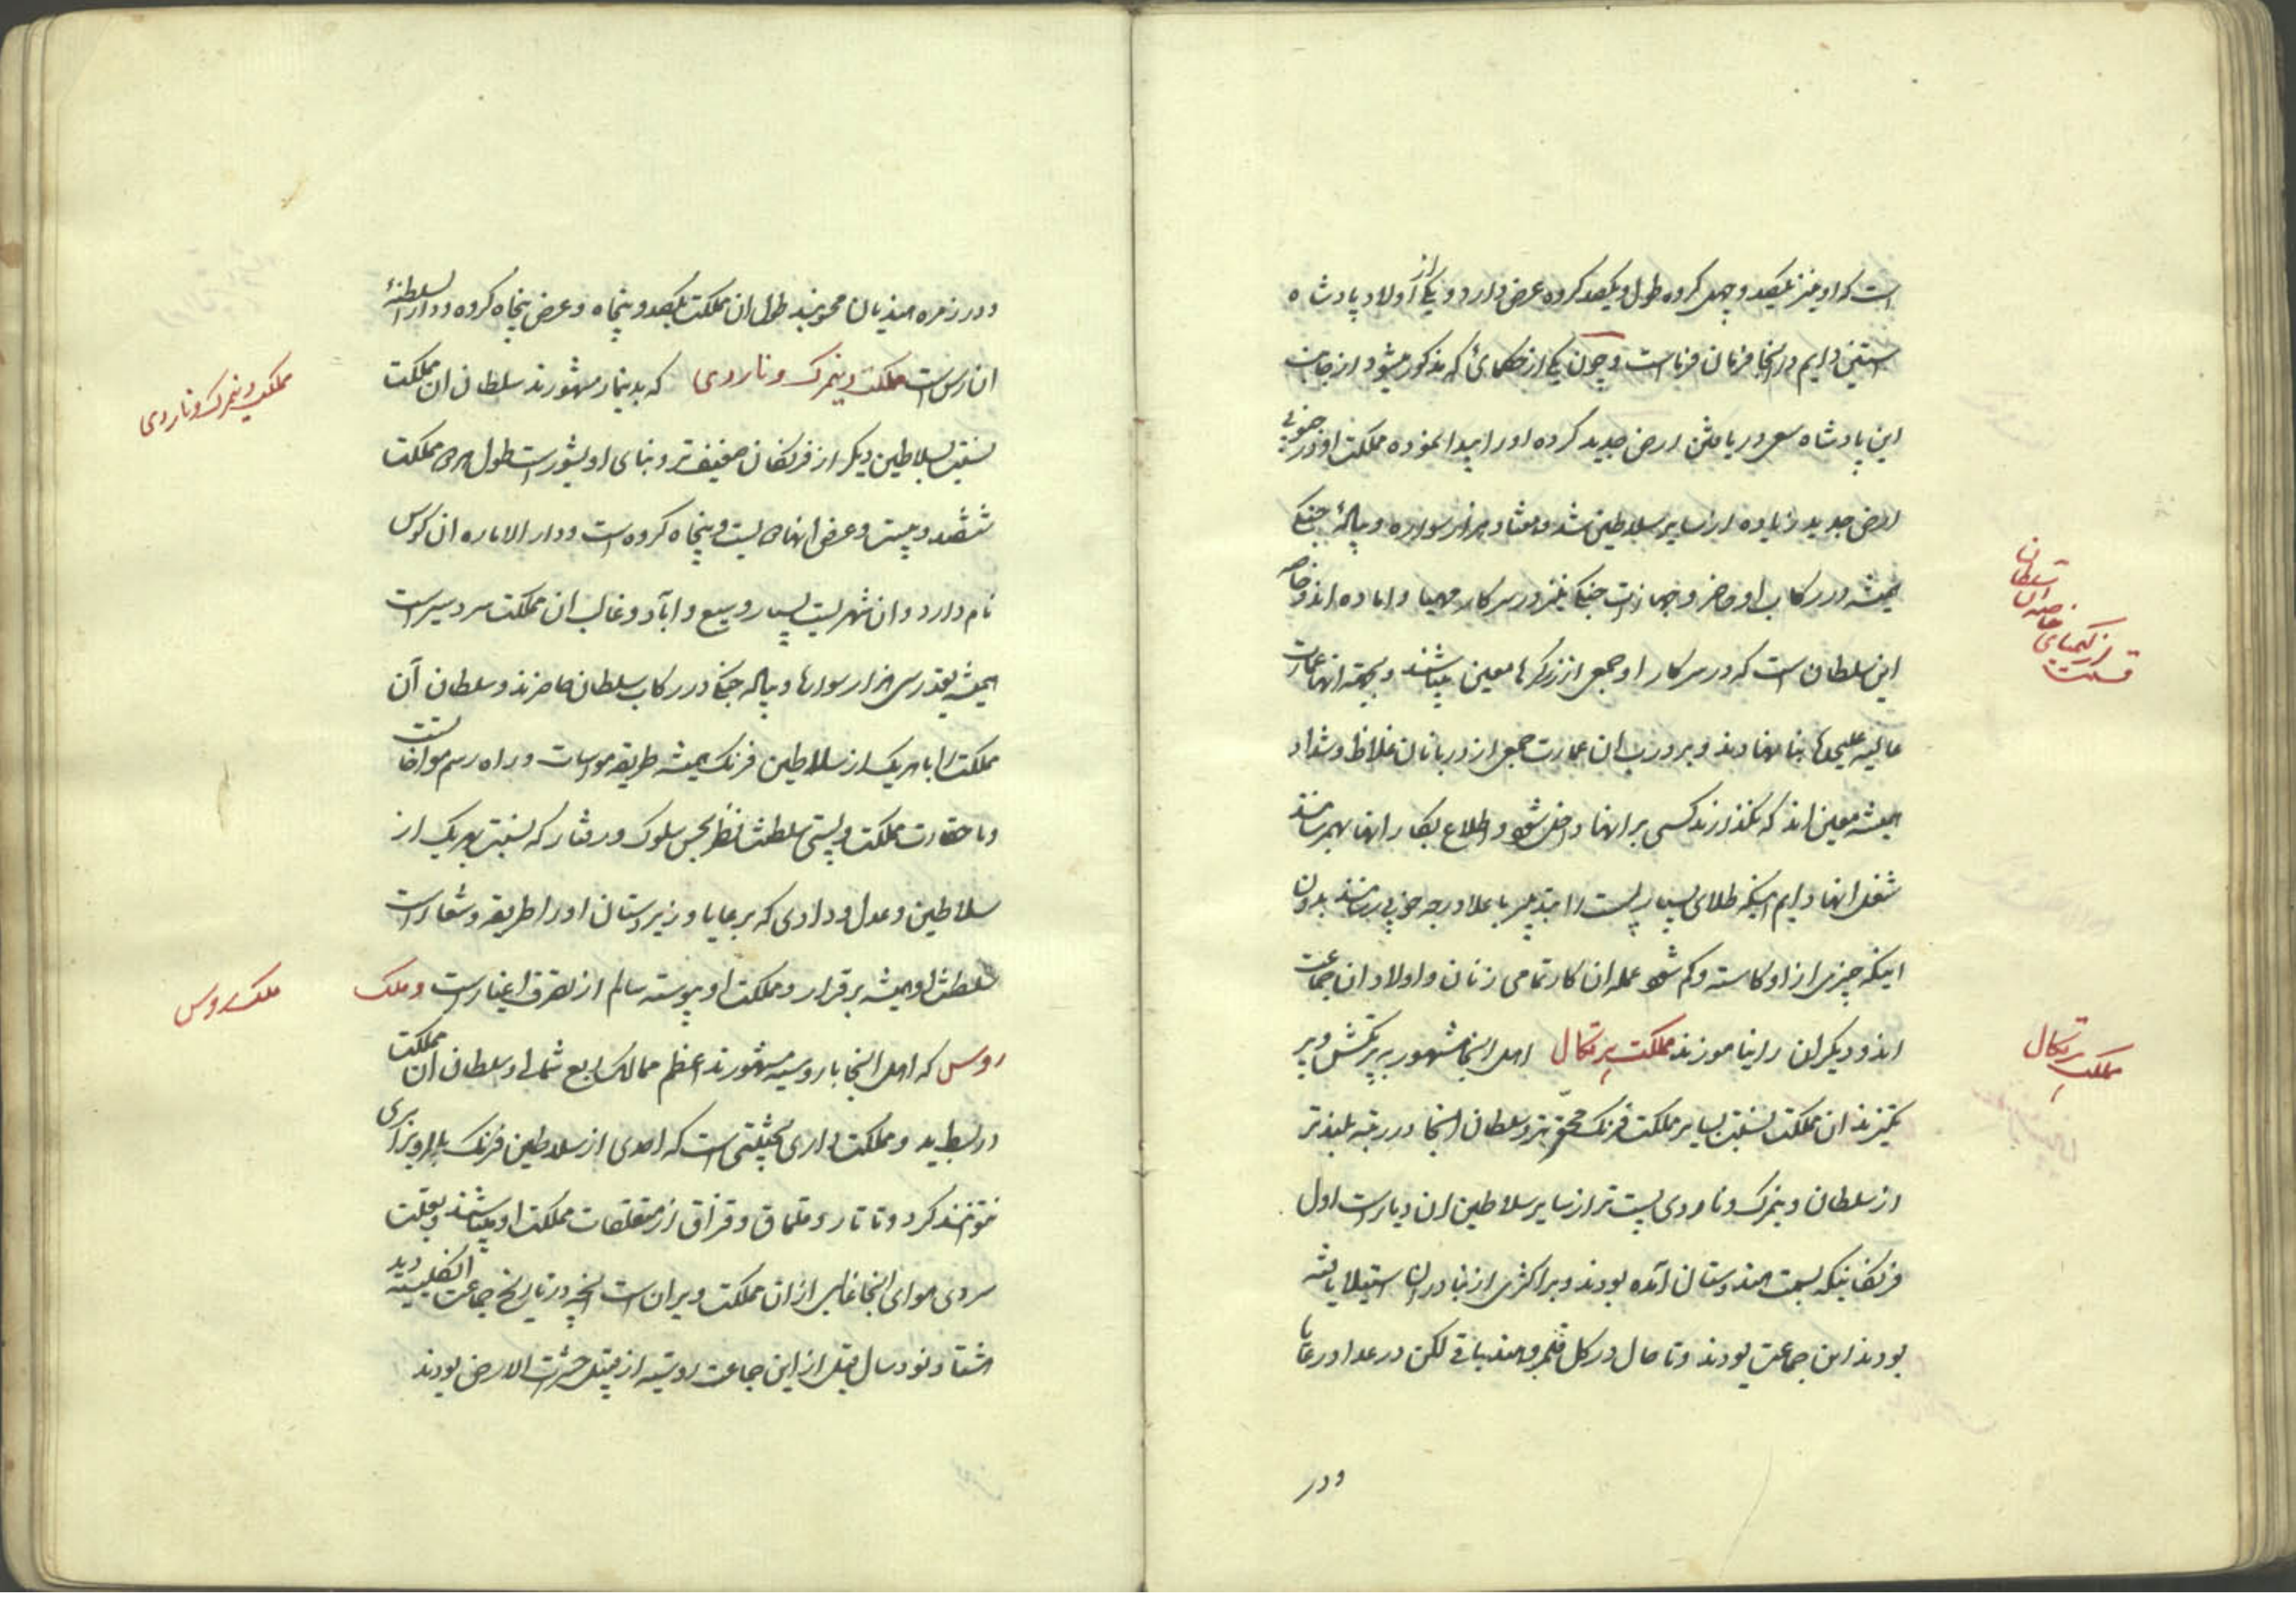 است که او نیز یکصد و چهل کروه طول و یکصد کروه عرض دارد و یکی از اولاد پادشاه
اسپنن دایم در انجا فرمان فرماست و چون یکی از حکمائ که مذکور میشود از جانب
این پادشاه سعی در یافتن ارض جدید کرده او را پیدا نموده مملکت او در جنوبی
ارض جدید زیاده از سایر سلاطین شد و هفتاد هزار سواره و پیاله جنگی
همیشه در رکاب او حاضر و جهازات جنگی نیز در سرکار مهیا و اماده اند و خاصه
این سلطان است که در سرکار او جمعی از زرگرها معین میباشند و بجهته انها عمارت
عالیه علیحده بنا نهادند و بر درب ان عمارت جمعی از دربانان غلاظ و شداد
همیشه معین اند که نگذارند کسی بر انها داخل شود و اطلاع بکار انها بهم رساند
شغل انها دایم اینکه طلای بسیار پست را بتدبیر باعلا درجه خوبی رسانند بدون
اینکه چیزی از او کاسته و کم شود عمله ان کار تمامی زنان و اولاد ان جماعت
اند و دیگران را نیاموزند مملکت پرتکال اهل انجا مشهور به پرتکش و پر
تکیزند ان مملکت نسبت بسایر مملکت فرنگ محقرتر و سلطان انجا در رتبه بلندتر
از سلطان دینمرک و ناروی پست تر از سایر سلاطین ان دیار است اول
فرنگانیکه بسمت هندوستان آمده بودند و بر اکثری از بنادر ان استیلا یافته
بودند این جماعت بودند و تا حال در کل قلمرو هند باقی لکن در عداد رعایا
ودر
خاصه ان سلطان
از کیمیای
قسمت
مملکت پرتکال
و در زمره هندیان محسوبند طول ان مملکت یکصد و پنجاه و عرض پنجاه کروه و دار السلطنهٔ
ان رس است مملکت دینمرک و ناروی که بدینمار مشهورند سلطان ان مملکت
نسبت بسلاطین دیگر از فرنگان ضعیف تر و بنای او بشور است طول هر دو مملکت
ششصد و بیست و عرض انها دویست و پنجاه کروه است و دار الاماره ان کوس
نام دارد و ان شهریست بسیار وسیع و آباد و غالب ان مملکت سردسیر است
همیشه بقدر سی هزار سوارها و پیاله جنگی در رکاب سلطان حاضرند و سلطان آن
مملکت را با هر یک از سلاطین فرنگ همیشه طریقه مواسات و راه رسم مواخات است
و با حقارت مملکت و پستی سلطنت نظر بحسن سلوک و رفتار که نسبت بهر یک از
سلاطین و عدل و دادی که بر عایا و زیردستان او را طریقه و شعار است
سلطنت او همیشه برقرار و مملکت او پیوسته سالم از تصرف اغیار است و ملک
روس که اهل انجا با روسیه مشهورند اعظم ممالک ربع شمالی و سلطان ان مملکت
در بسط ید و مملکت داری بحیثیتی است که احدی از سلاطین فرنگ با او برابری
نتوانند کرد و تاتار و قلماق و قزاق از متعلقات مملکت او میباشند و بعلت
سردی هوای انجا غالبی از ان مملکت ویران است انچه در تاریخ جماعت انکلیسیه دید
هشتاد نود سال قبل از این جماعت روسیه از قبیل حشرات الارض بودند
مملکت دینمرک و ناروی
ملک روس